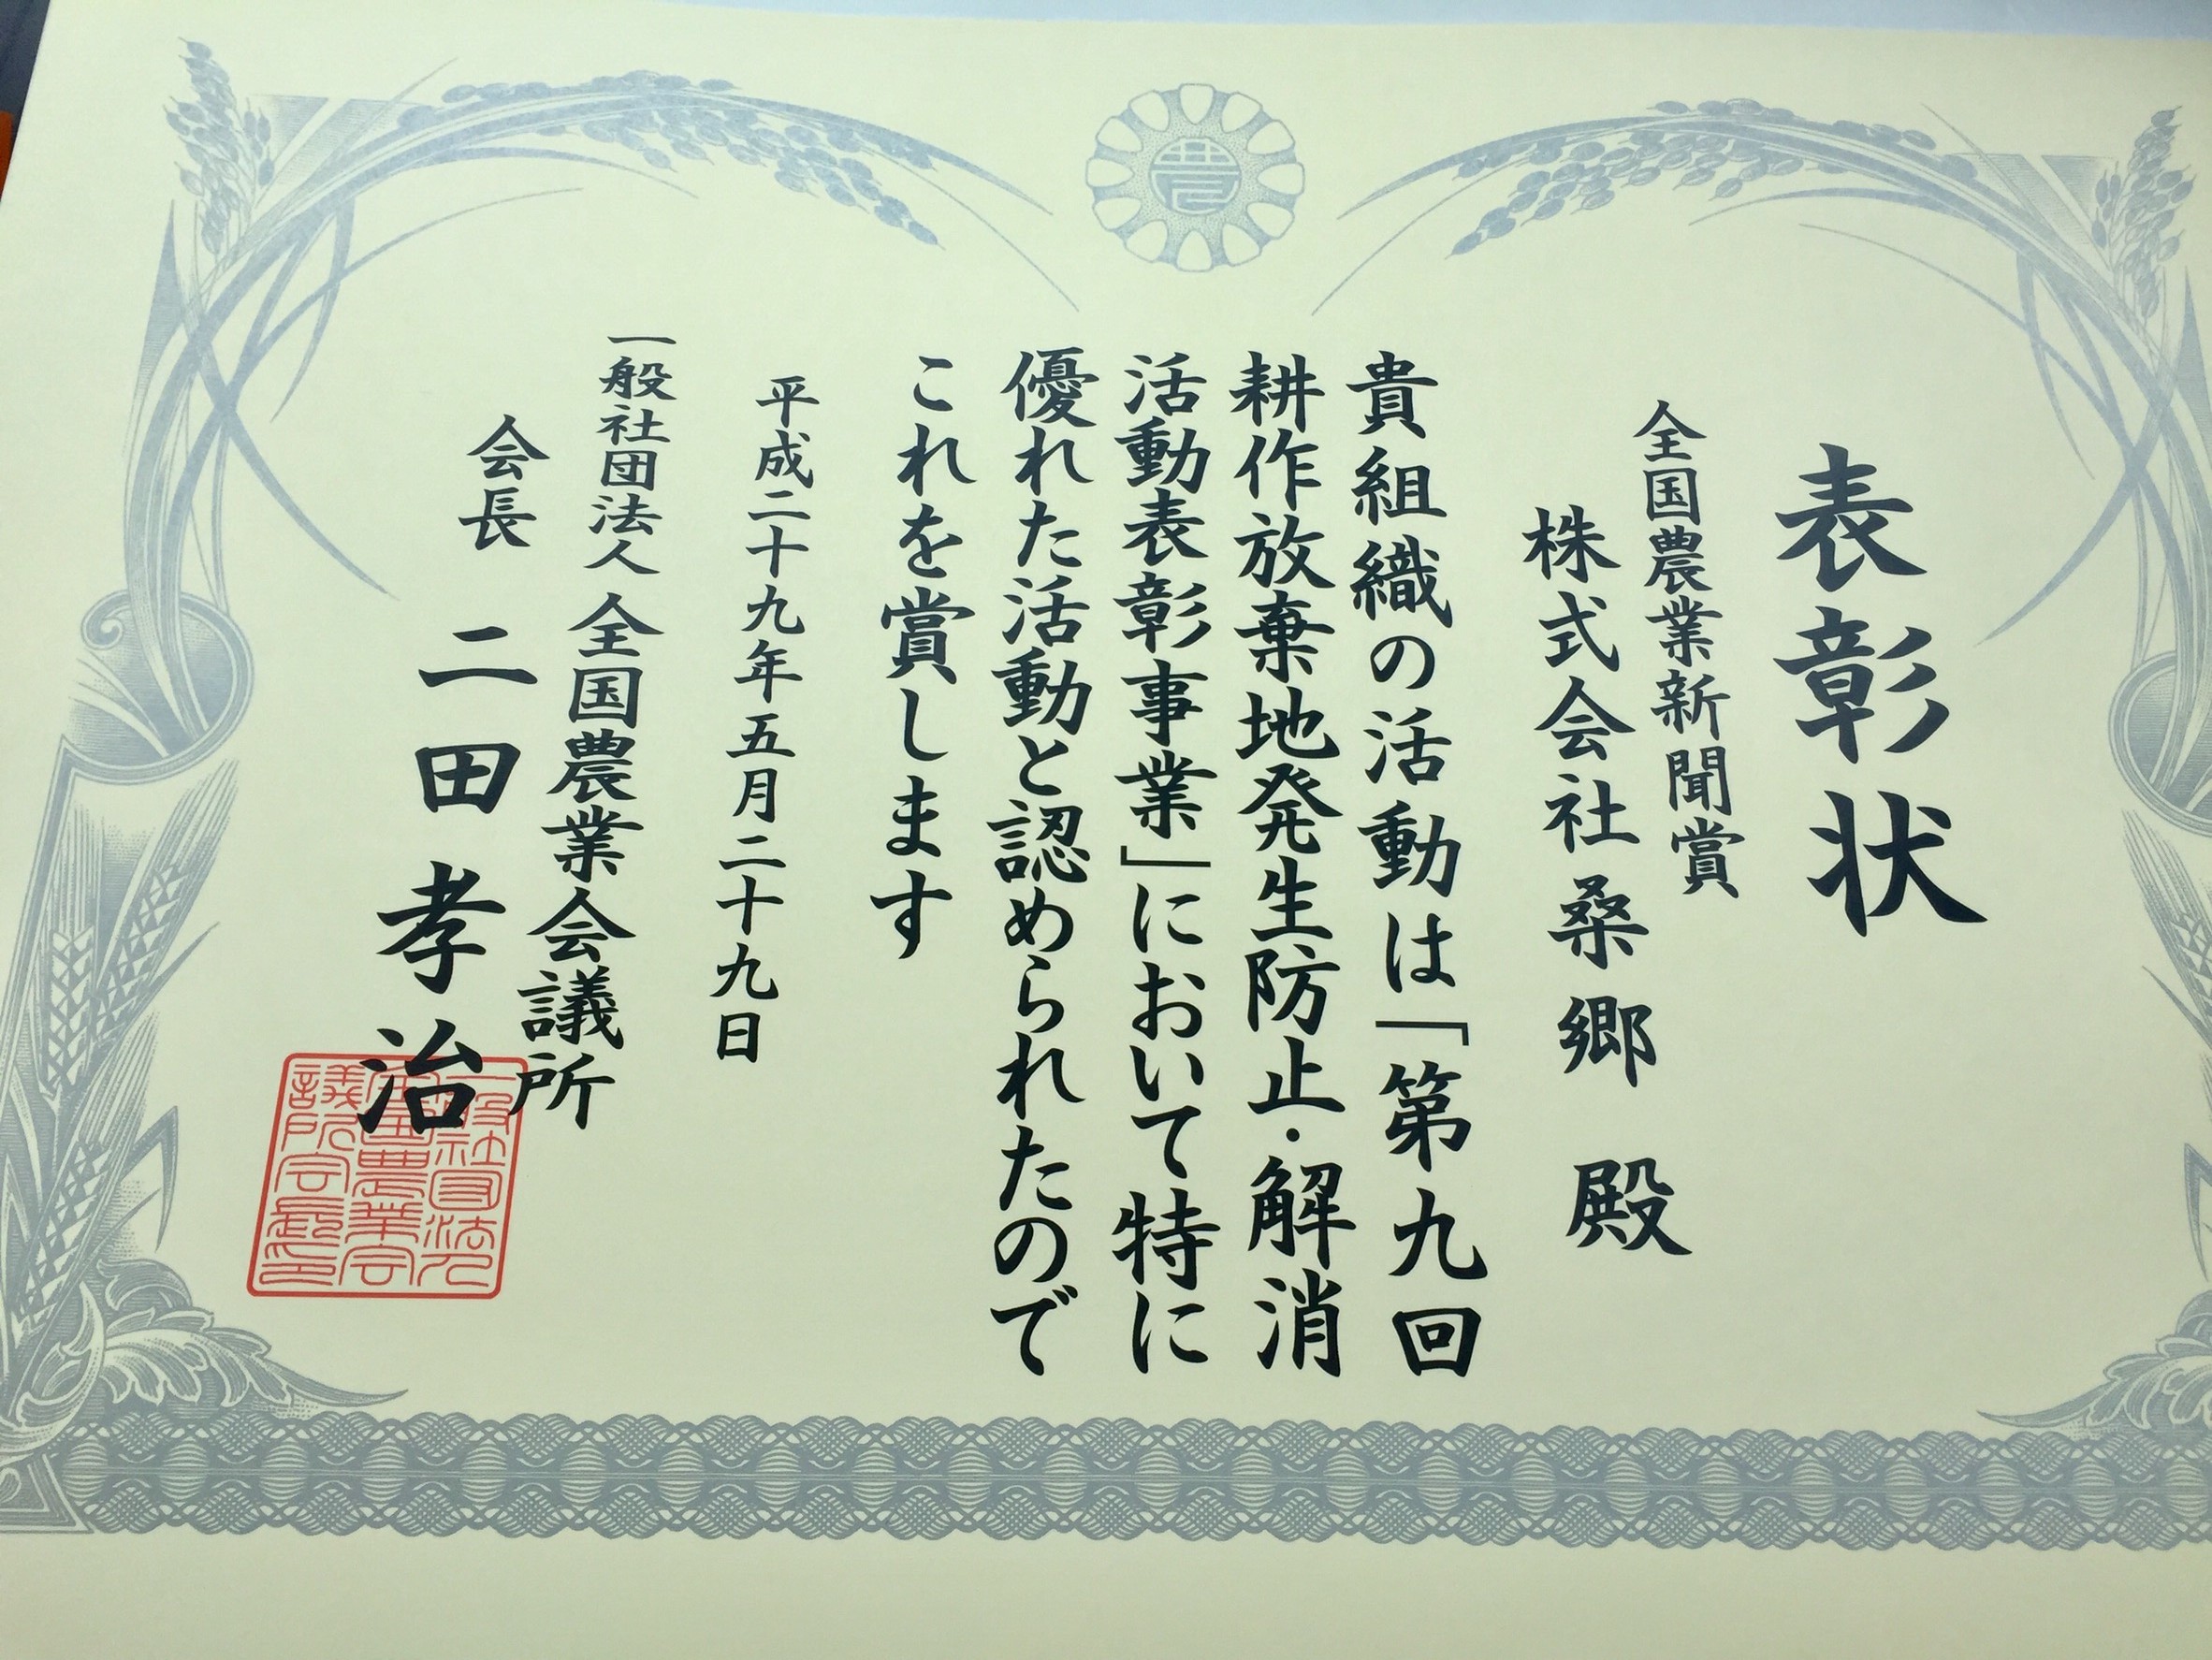 表彰状
全国農業新聞賞
株式会社桑郷 殿
貴組織の活動は「第九回
耕作放棄地発生防止・解消
活動表彰事業」において特に
優れた活動と認められたので
これを賞します
平成二十九年五月二十九日
一般社団法人 全国農業会議所
会長 二田孝治
一般社団法人
全国農業会
議所会長印